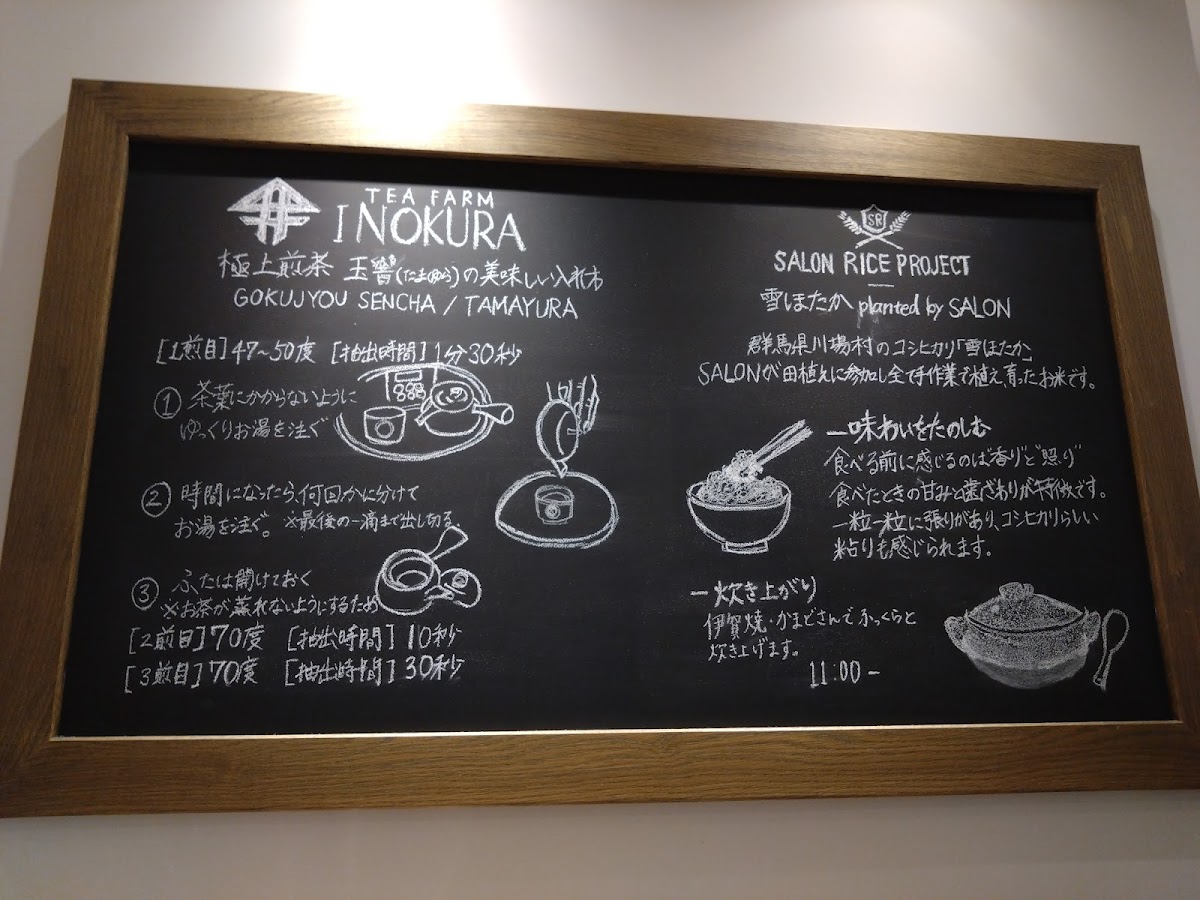 TEA FARM
INOKURA
極上煎茶 玉響(たまゆら)の美味しい入れ方
GOKUJYOU SENCHA / TAMAYURA
[1煎目] 47~50度 [抽出時間] 1分30秒
① 茶葉にかからないように
ゆっくりお湯を注ぐ
② 時間になったら、何回かに分けて
お湯を注ぐ。 ※最後の一滴まで出し切る。
③ ふたは開けておく
※お茶が蒸れないようにするため
[2煎目] 70度 [抽出時間] 10秒
[3煎目] 70度 [抽出時間] 30秒
SR
SALON RICE PROJECT
雪ほたか planted by SALON
群馬県川場村のコシヒカリ「雪ほたか」
SALONが田植えに参加し全て手作業で植え、育ったお米です。
ー味わいをたのしむ
食べる前に感じるのは"香り"と"照り"
食べたときの甘みと歯ざわりが特徴です。
一粒一粒に張りがあり、コシヒカリらしい
粘りも感じられます。
ー炊き上がり
伊賀焼・かまどさんでふっくらと
炊き上げます。
11:00 -